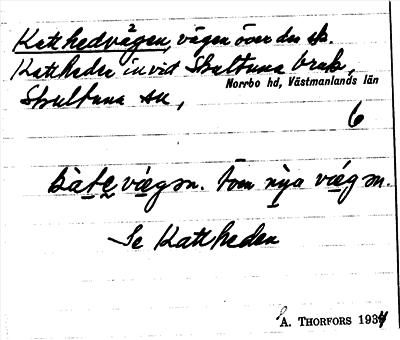 Katthedvägen, vägen över den sk.
Kattheden invid Skultuna bruk,
Norrbo hd, Västmanlands län
Skultuna sn,
6
kàte vǽgən. Tom nỳa vǽgən.
Se Kattheden
A. THORFORS 1934